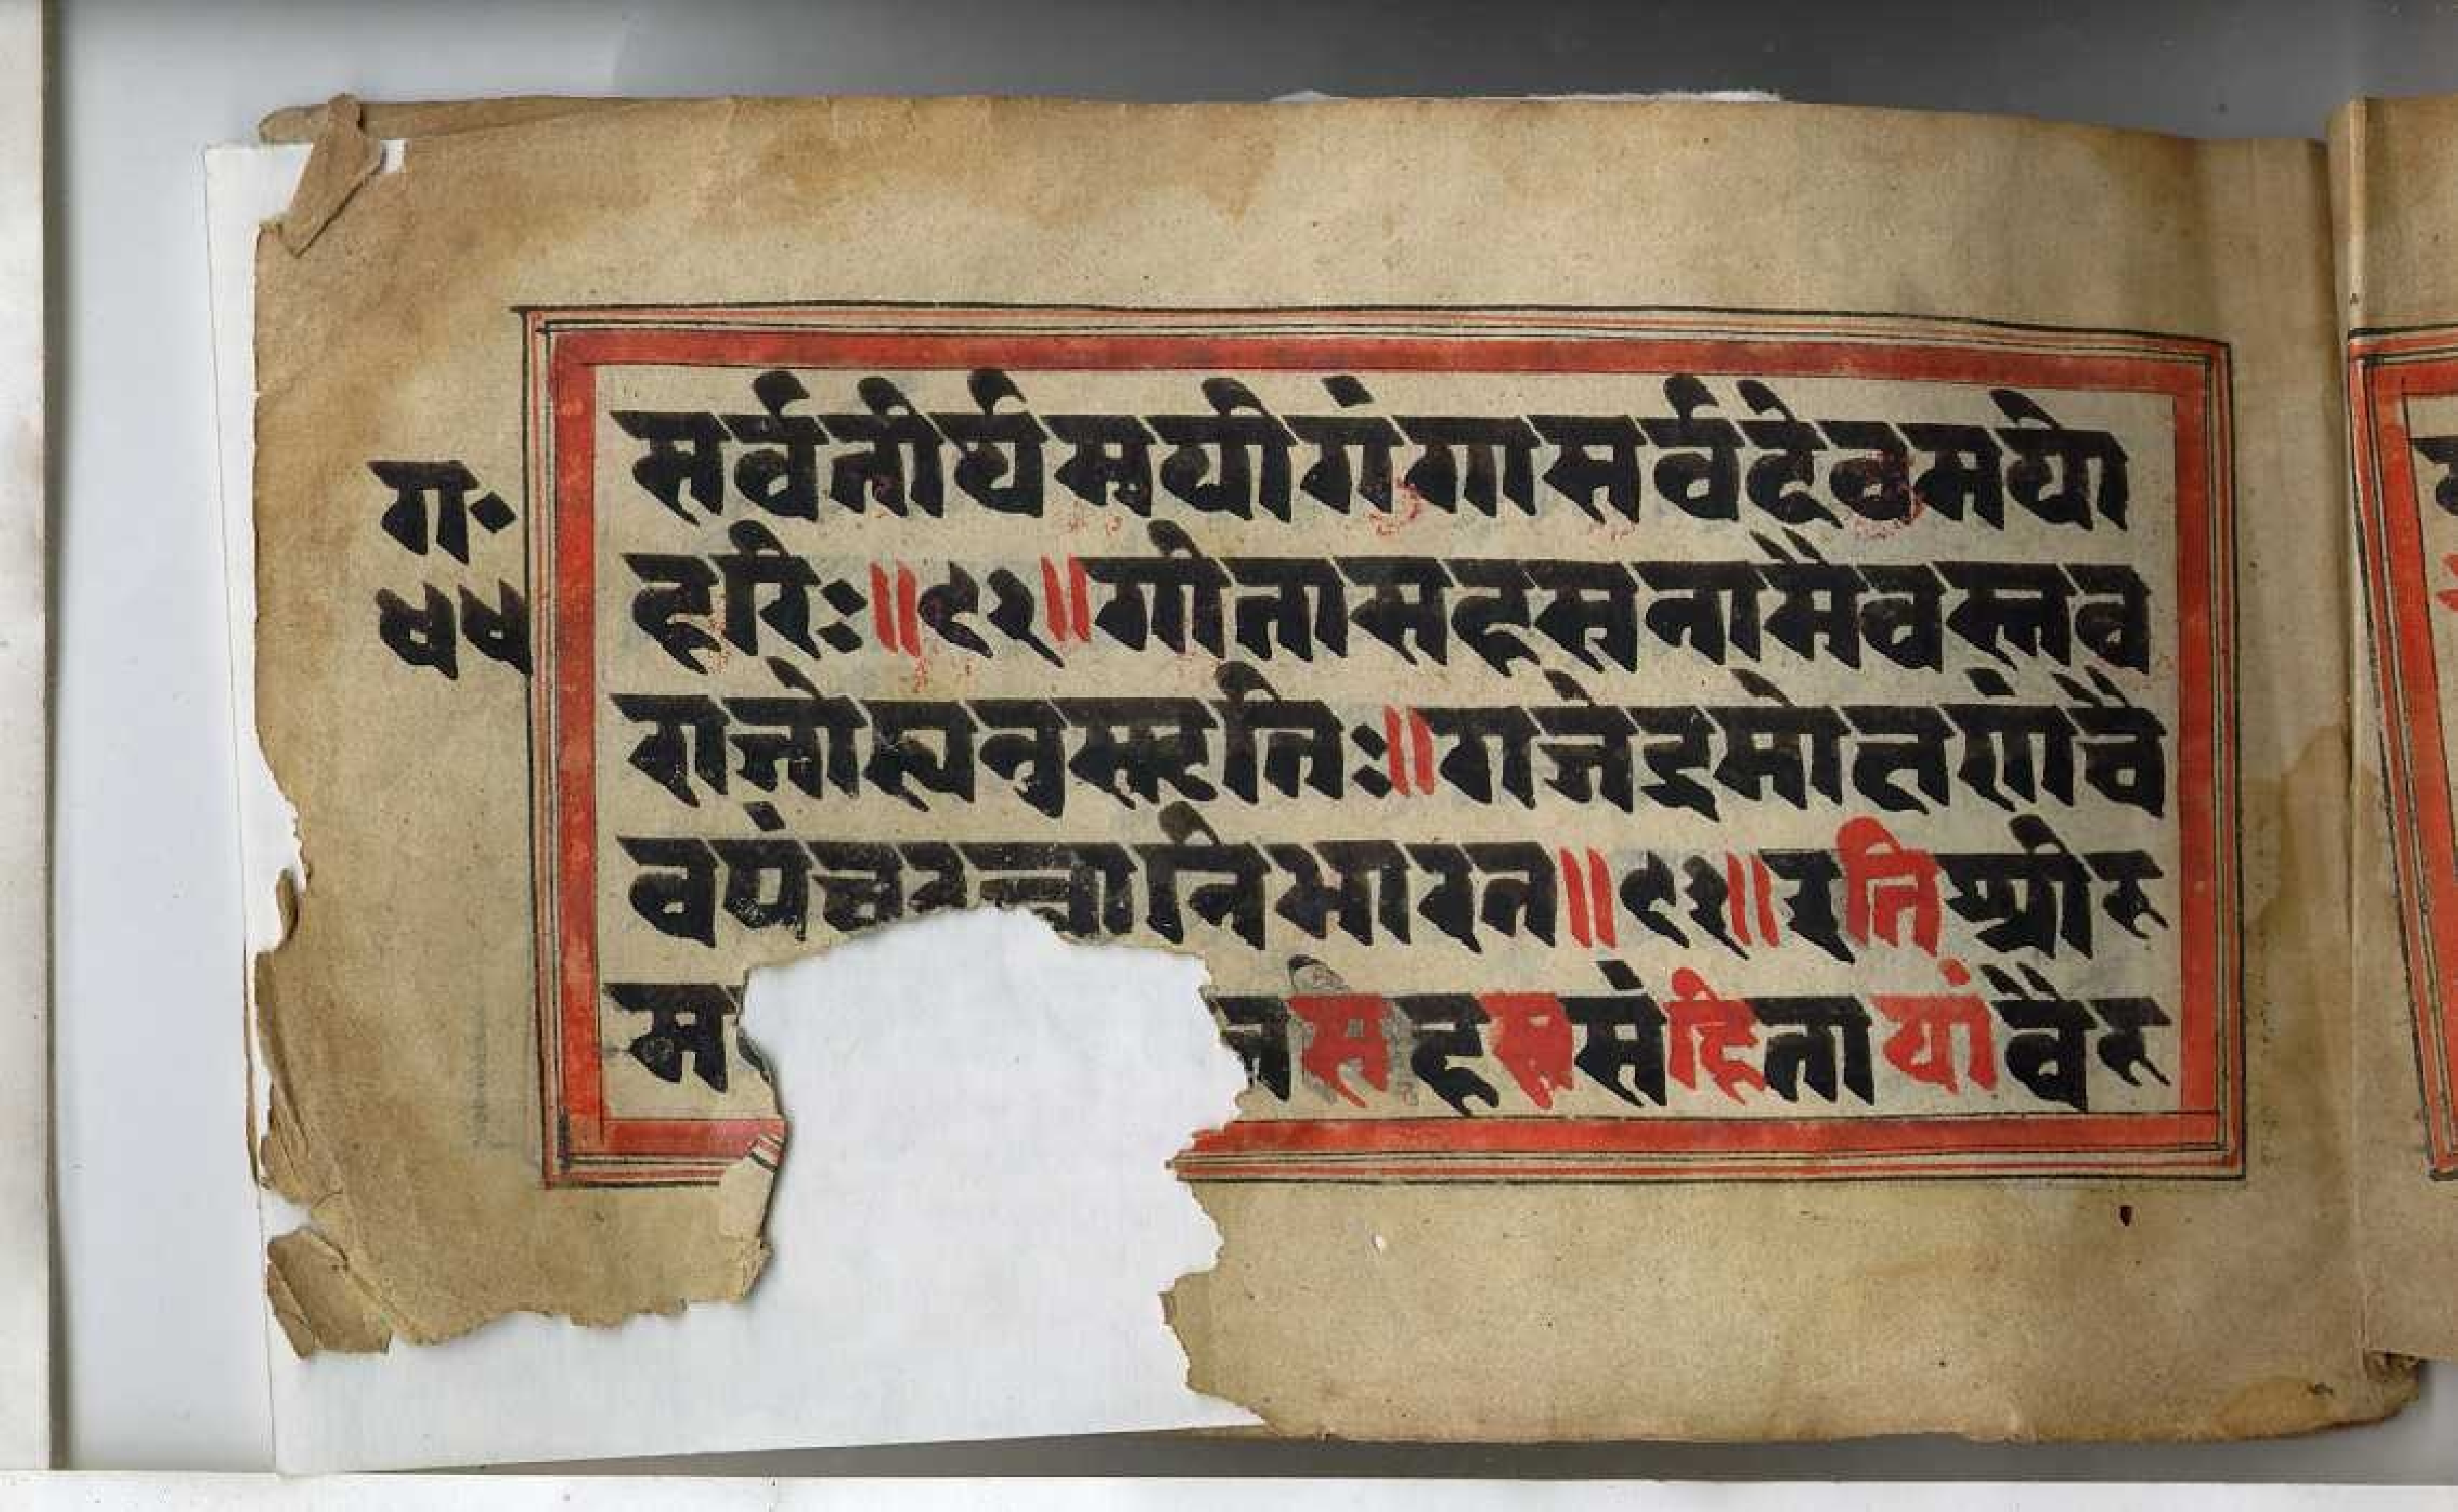 ग॰
सर्वतीर्थमयीगंगासर्वदेवमयो
हरिः॥९२॥गीतासहस्रनामैवस्तव
राजोह्यनुस्मृतिः॥गजेंद्रमो
वपंचरत्नानिभारत॥९३॥इतिश्रीम
म
सहस्रसंहितायांवैय